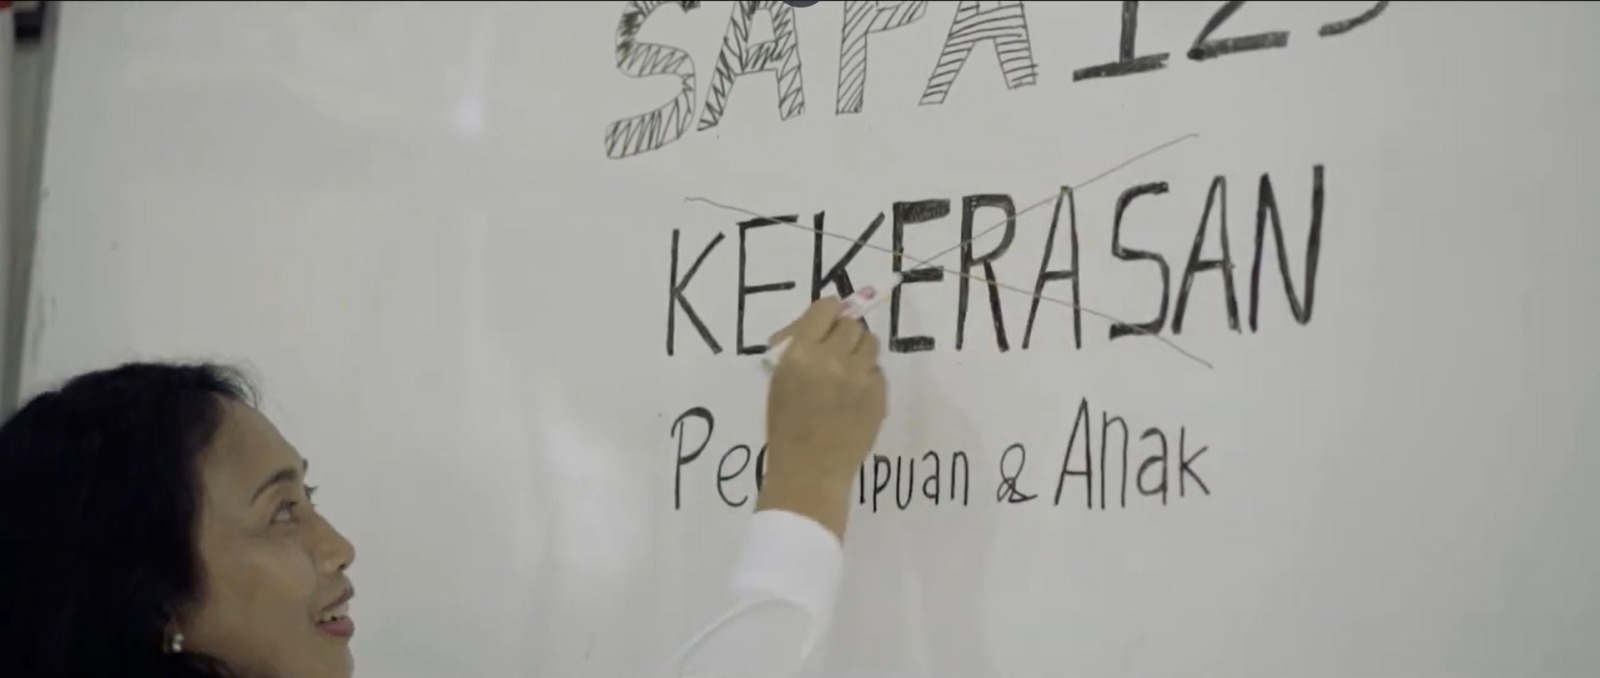 SAPA 129
KEKERASAN
Perempuan & Anak